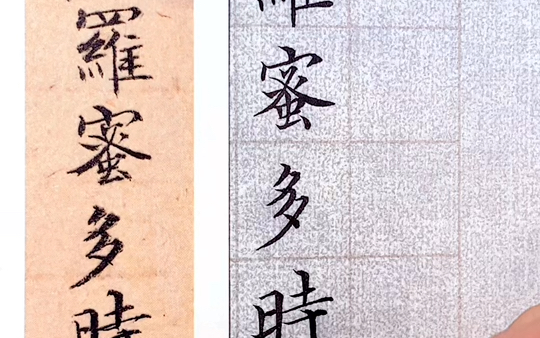 羅蜜多時
羅蜜多時